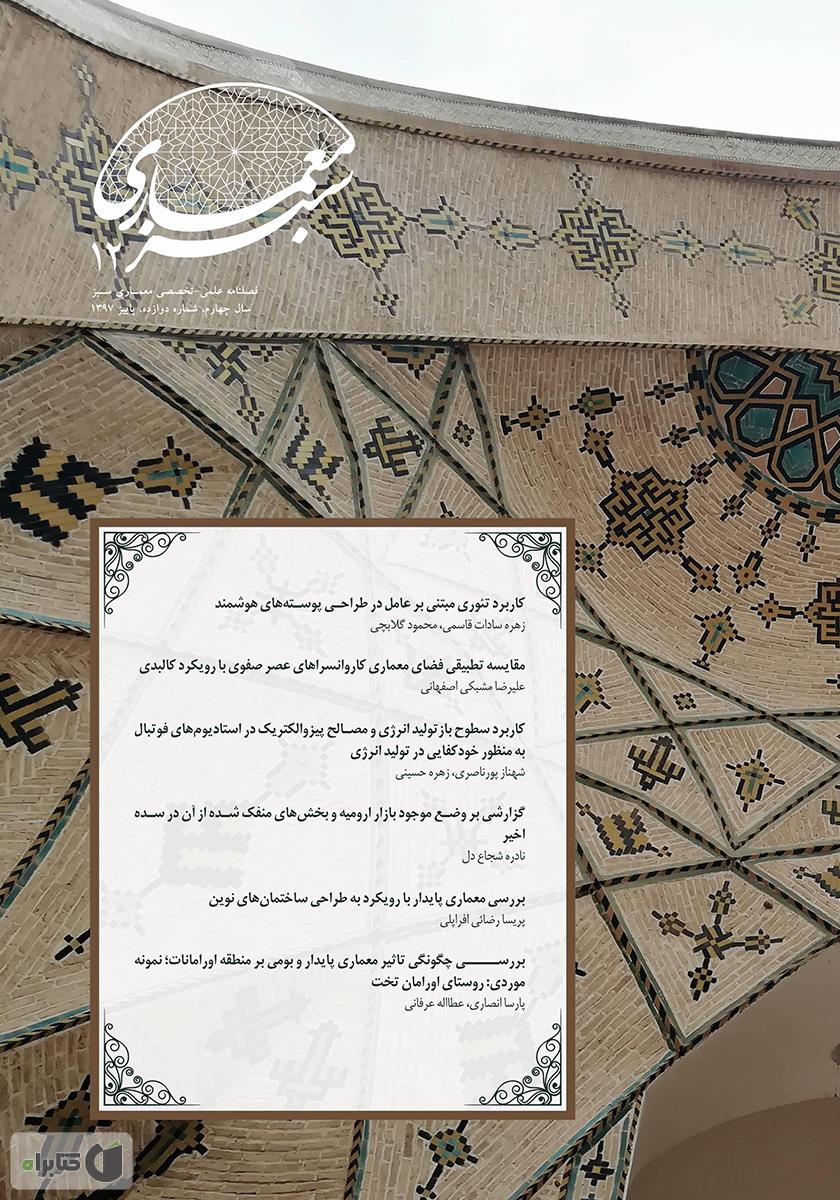 معماری
سبز
۱۲
فصلنامه علمی-تخصصی معماری سبز
سال چهارم، شماره دوازده، پاییز ۱۳۹۷
کاربرد تئوری مبتنی بر عامل در طراحی پوسته‌های هوشمند
زهره سادات قاسمی، محمود گلابچی
مقایسه تطبیقی فضای معماری کاروانسراهای عصر صفوی با رویکرد کالبدی
علیرضا مشبکی اصفهانی
کاربرد سطوح باز تولید انرژی و مصالح پیزوالکتریک در استادیوم‌های فوتبال
به منظور خودکفایی در تولید انرژی
شهناز پورناصری، زهره حسینی
گزارشی بر وضع موجود بازار ارومیه و بخش‌های منفک شده از آن در سده
اخیر
نادره شجاع دل
بررسی معماری پایدار با رویکرد به طراحی ساختمان‌های نوین
پریسا رضائی افراپلی
بررسی چگونگی تاثیر معماری پایدار و بومی بر منطقه اورامانات؛ نمونه
موردی: روستای اورامان تخت
پارسا انصاری، عطااله عرفانی
کتابراه